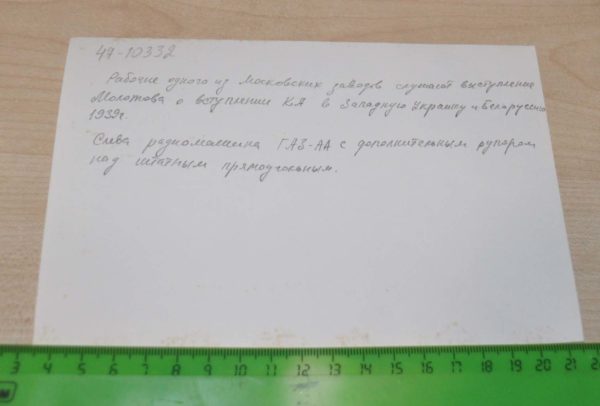 47-10332
Рабочие одного из Московских заводов слушают выступление
Молотова о вступлении КА в Западную Украину и Белоруссию
1939г.
Слева радиомашина ГАЗ-АА с дополнительным рупором
над штатным прямоугольным.
3 4 5 6 7 8 9 10 11 12 13 14 15 16 17 18 19 20 21 22